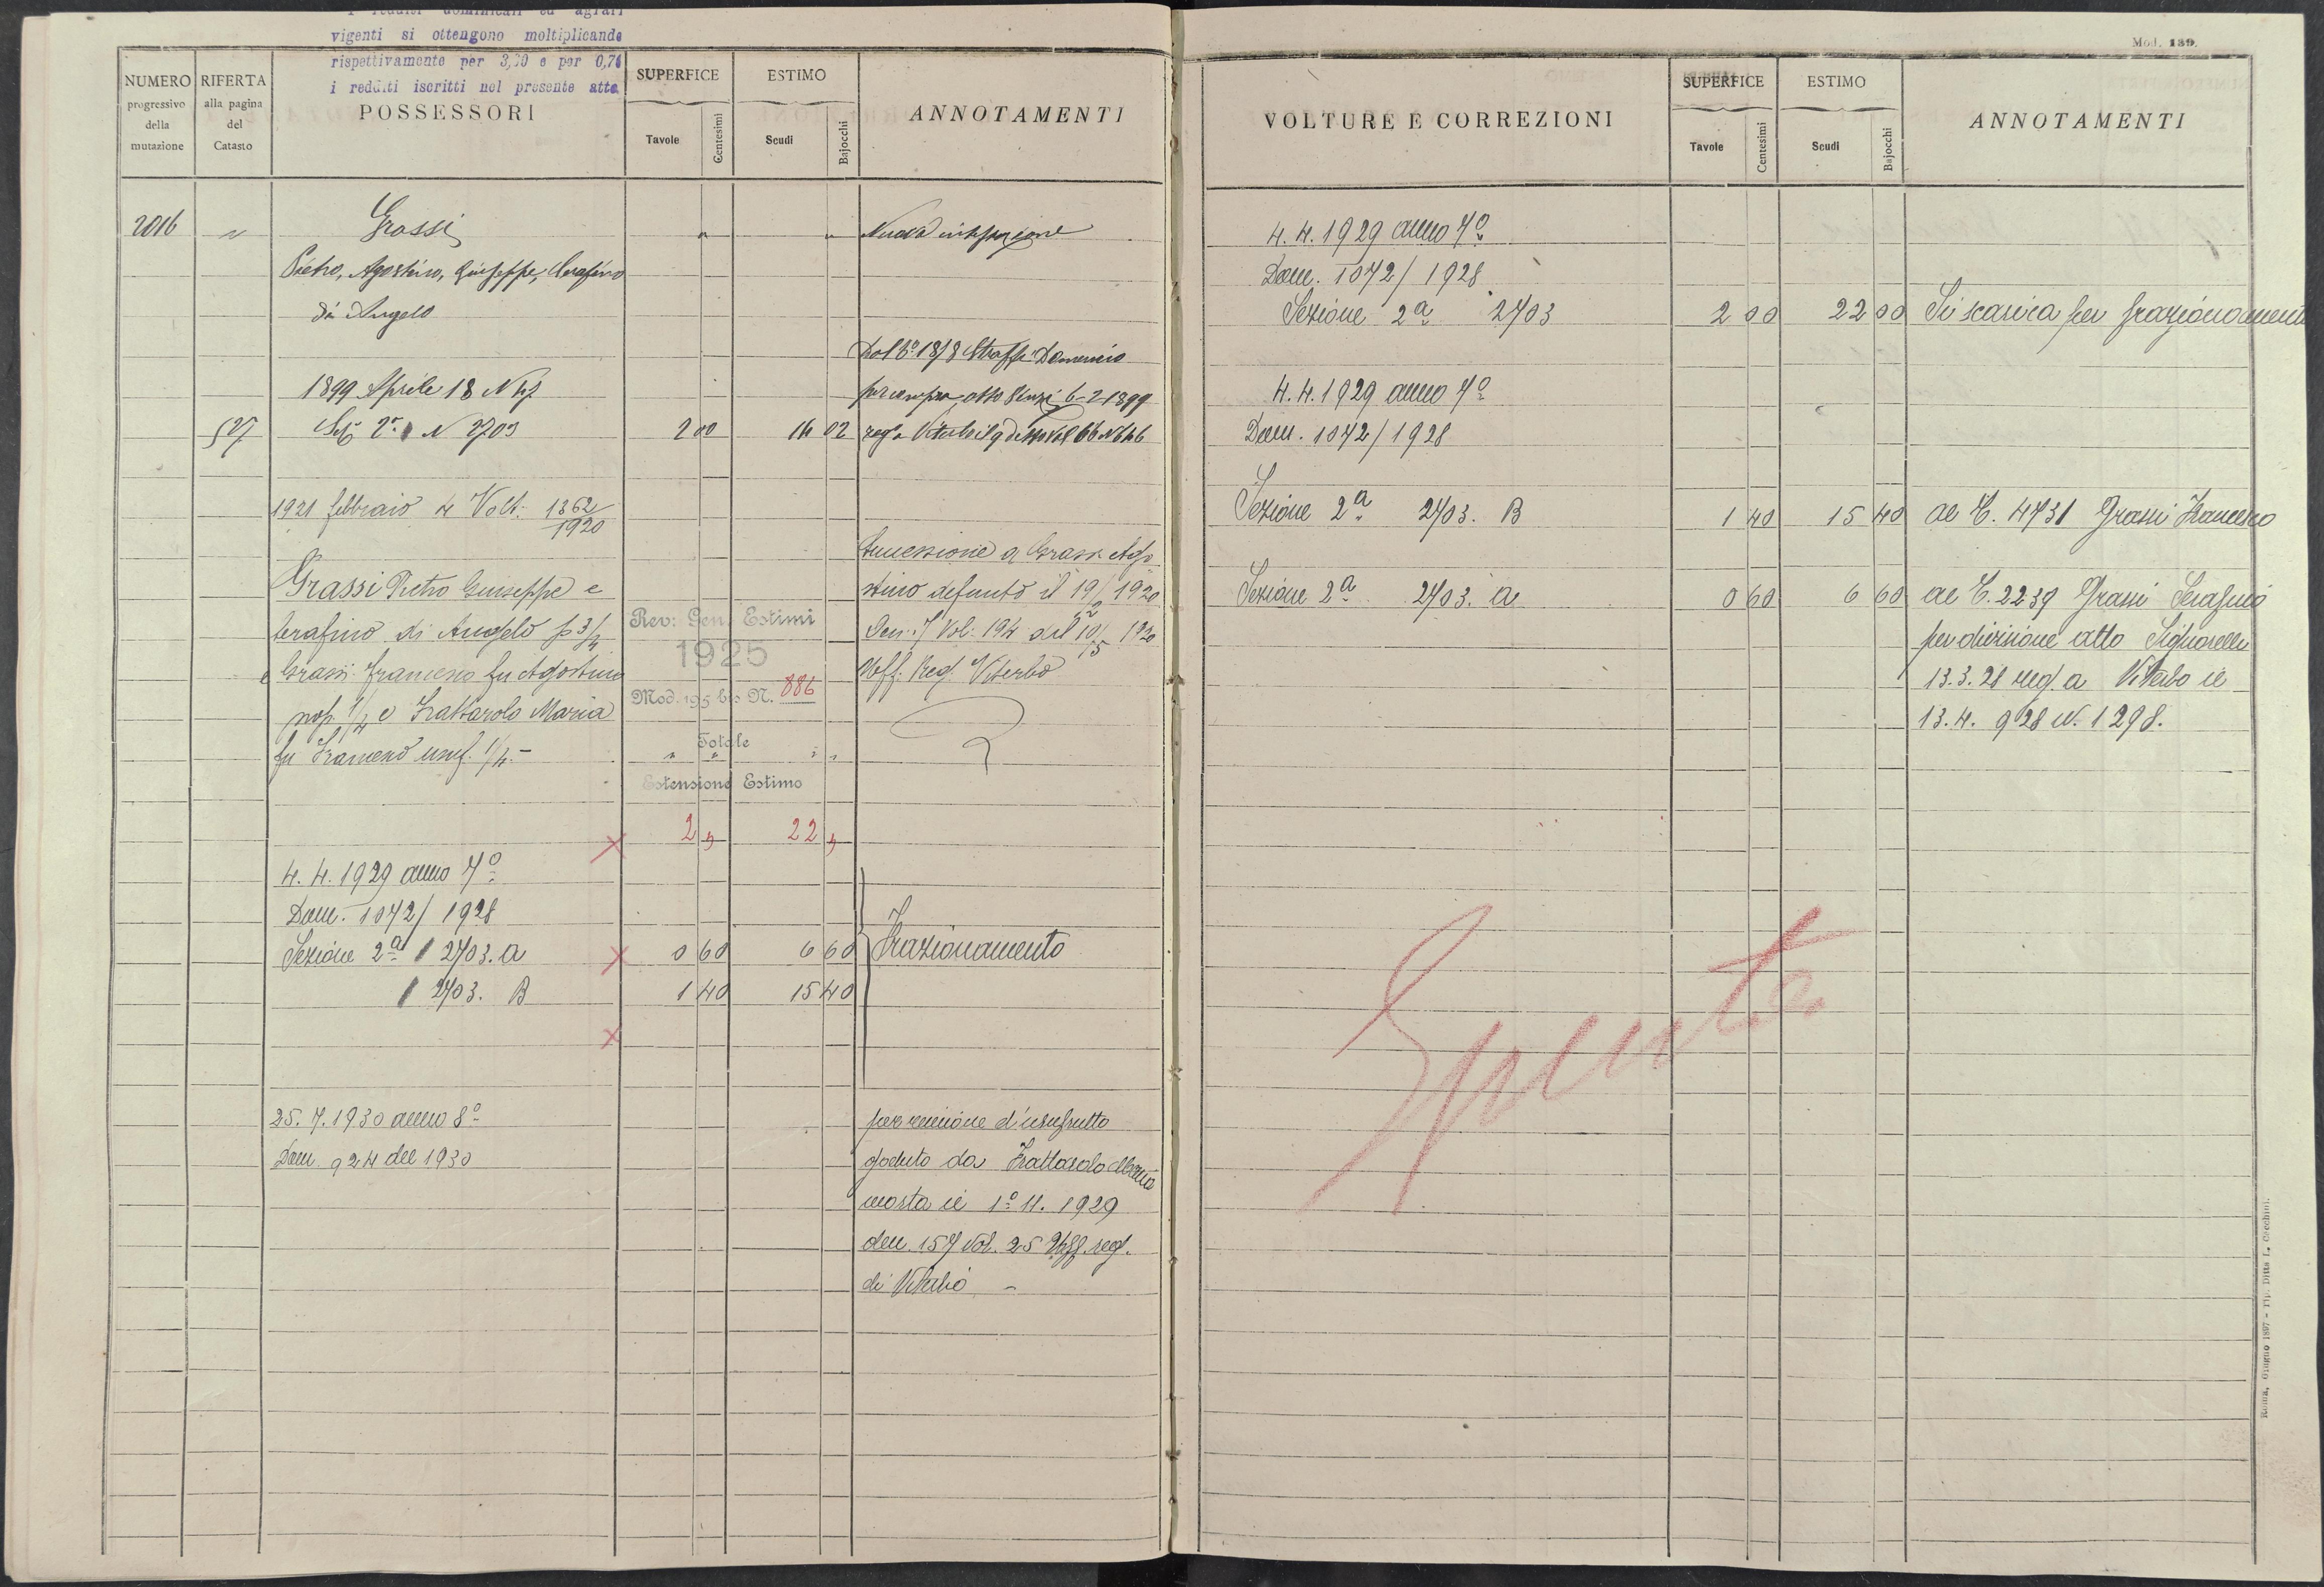 i redditi dominicali ed agrari
vigenti si ottengono moltiplicando
rispettivamente per 3,20 e per 0,76
i redditi iscritti nel presente atto.
NUMERO
progressivo
della
mutazione
RIFERTA
alla pagina
del
Catasto
POSSESSORI
SUPERFICE
Tavole
Centesimi
ESTIMO
Scudi
Bajocchi
ANNOTAMENTI
2016 " Grassi " " Nuova intestazione
Pietro, Agostino, Giuseppe, Serafino
di Angelo
Dal
1899 Aprile 18 N
per compra atto 6-2-1899
527 Sez 2a N 2703 2 00 14 02 reg a Viterbo il 9 detto Vol 66 N 646
1921 febbraio 4 Volt. 1362/1920
Successione a Grassi Ago
Grassi Pietro Giuseppe e
stino defunto il 19/2 1920
Serafino di Angelo p 3/4
Den. 7 Vol. 194 del 10/5 1920
e Grassi Francesco fu Agostino
Uff. Reg. Viterbo
prop. 1/4 e Frattarolo Maria
fu Francesco usuf. 1/4.-
Rev: Gen. Estimi
1925
Mod. 195 bis N. 886
Totale
" " " "
Estensione Estimo
2 " 22 "
4.4.1929 anno 7o
Dom. 1072/1928
Sezione 2a 2703. A 0 60 6 60 Frazionamento
2703. B 1 40 15 40
25.7.1930 anno 8o
Dom 924 del 1930
per riunione d'usufrutto
goduto da Frattarolo Maria
morta il 1o 11. 1929
den. 157 Vol. 25 Uff. reg.
di Viterbo -
Mod. 139.
VOLTURE E CORREZIONI
SUPERFICE
Tavole
Centesimi
ESTIMO
Scudi
Bajocchi
ANNOTAMENTI
4.4.1929 anno 7o
Dom. 1072/1928
Sezione 2a 2703 2 00 22 00 Si scarica per frazionamento
4.4.1929 anno 7o
Dom. 1072/1928
Sezione 2a 2703. B 1 40 15 40 al C. 4731 Grassi Francesco
Sezione 2a 2703. A 0 60 6 60 al C. 2239 Grassi Serafino
per divisione atto Signorelli
13.3.28 reg. a Viterbo il
13.4. 928 N. 1298.
Spenta
Roma, Giugno 1897 - Tip. Ditta L. Cecchini.